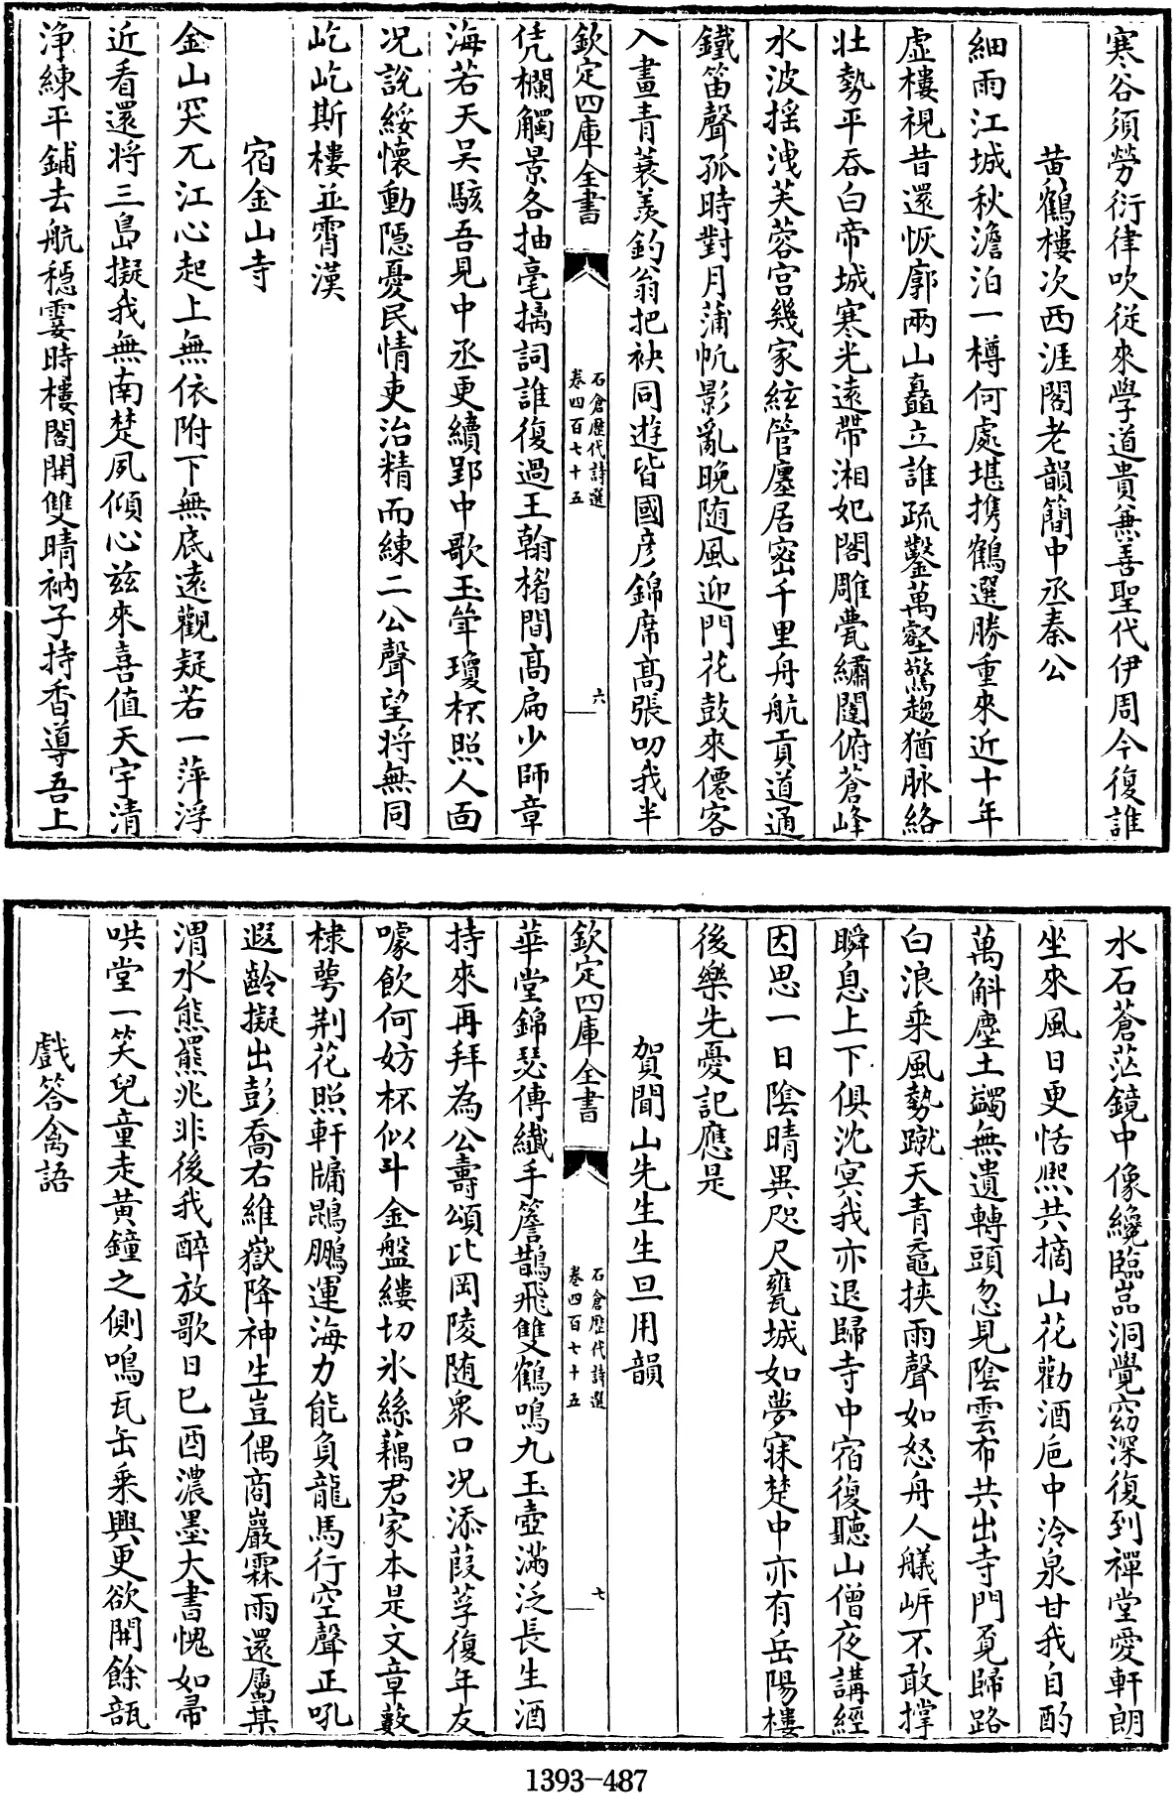 寒谷須勞衍律吹従來學道貴兼善聖代伊周今復誰
黄鶴樓次西涯閣老韻簡中丞秦公
細雨江城秋澹泊一樽何處堪携鶴選勝重來近十年
虛樓視昔還恢廓兩山矗立誰疏鑿萬壑驚趨猶脉絡
壮勢平吞白帝城寒光遠帶湘妃閣雕甍繡闥俯蒼峰
水波摇洩芙蓉宫幾家絃管廛居宻千里舟航貢道通
鐵笛聲孤時對月蒲帆影亂晚随風迎門花鼓來僊客
入畫青蓑羨釣翁把袂同遊皆國彦錦席髙張叨我半
欽定四庫全書
石倉歴代詩選
卷四百七十五
六
凭欄觸景各抽毫摛詞誰復過王翰楣間髙扁少師章
海若天吴駭吾見中丞更續郢中歌玉斚瓊杯照人面
况說綏懷動隠憂民情吏治精而練二公聲望将無同
屹屹斯樓並霄漢
宿金山寺
金山突兀江心起上無依附下無底逺觀疑若一萍浮
近看還将三島擬我無南楚夙傾心兹來喜值天宇清
浄練平鋪去航穏霎時樓閣開雙晴衲子持香導吾上
水石蒼茫鏡中像纔臨嵓洞覺窈深復到禪堂愛軒朗
坐來風日更恬熙共摘山花勸酒巵中泠泉甘我自酌
萬斛塵土蠲無遺轉頭忽見陰雲布共出寺門覓歸路
白浪乗風勢蹴天青黿挾雨聲如怒舟人艤岍不敢撑
瞬息上下俱沈冥我亦退歸寺中宿復聽山僧夜講經
因思一日陰晴異咫尺甕城如夢寐楚中亦有岳陽樓
後樂先憂記應是
賀閒山先生生旦用韻
欽定四庫全書
石倉歴代詩選
卷四百七十五
七
華堂錦瑟傳纎手簷鵲飛雙鶴鳴九玉壺滿泛長生酒
持來再拜為公夀頌比岡陵随衆口况添葭莩復年友
噱飲何妨杯似斗金盤縷切氷絲藕君家本是文章藪
棣萼荆花照軒牖鵾鵬運海力能負龍馬行空聲正吼
遐齡擬出彭喬右維嶽降神生豈偶商巖霖雨還屬某
渭水熊羆兆非後我醉放歌日已酉濃墨大書愧如帚
哄堂一笑兒童走黄鐘之側鳴瓦缶乗興更欲開餘瓿
戯答禽語
1393-487